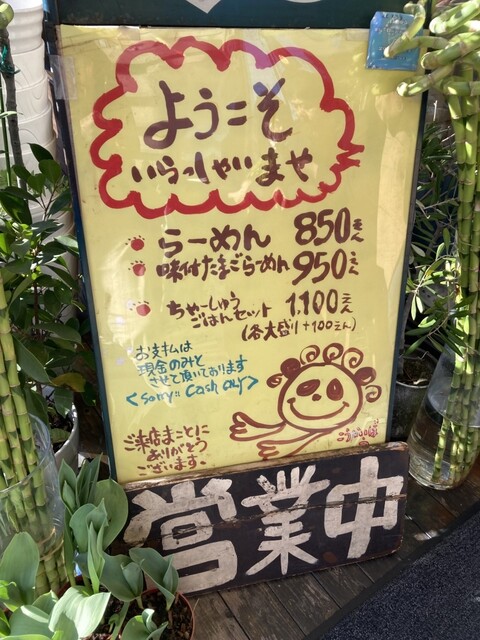 ようこそ
いらっしゃいませ
らーめん 850えん
味付たまごらーめん 950えん
ちゃーしゅう
ごはんセット 1,100えん
(各大盛り+100えん)
お支払は
現金のみと
させて頂いております
<sorry!! Cash only>
ご来店まことに
ありがとう
ございます。
営業中